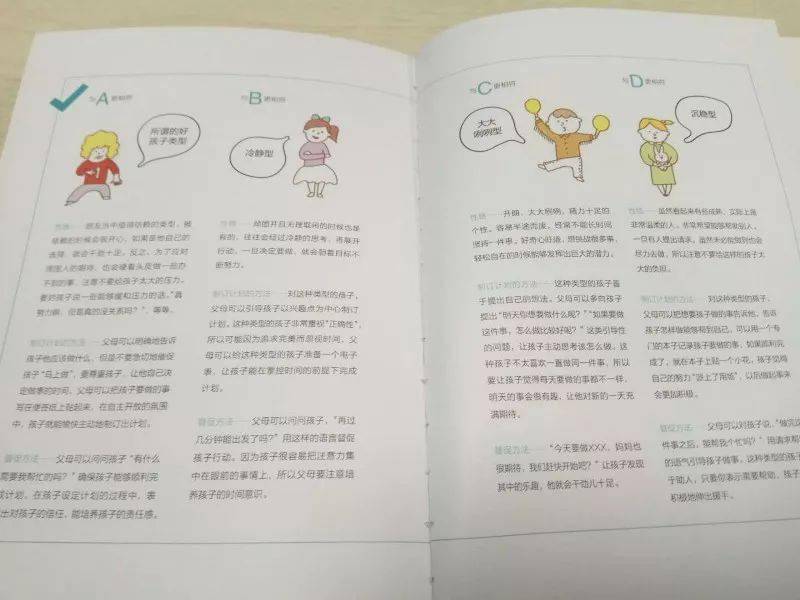 与A更相符
所谓的好
孩子类型
性格——朋友当中值得依赖的类型，被
依赖的时候会很开心。如果是他自己的
选择，就会干劲十足。反之，为了应对
周围人的期待，也会硬着头皮做一些办
不到的事，注意不要给孩子太大的压力。
看对孩子说一些能够缓和压力的话，“真
努力啊，但是真的没关系吗？”，等等。
制订计划的方法——父母可以明确地告诉
孩子他应该做什么，但是不要急切地催促
孩子“马上做”，要尊重孩子，让他自己决
定做事的时间。父母可以把孩子要做的事
写在便签纸上贴起来，在自主开放的氛围
中，孩子就能愉快主动地制订出计划。
督促方法——父母可以问问孩子“有什么
需要我帮忙的吗？”确保孩子能够顺利完
成计划。在孩子设定计划的过程中，表
出对孩子的信任，能培养孩子的责任感。
与B更相符
冷静型
性格——顽固并且无理取闹的时候也是
有的，往往会经过冷静的思考，再展开
行动，一旦决定要做，就会朝着目标不
断努力。
制订计划的方法——对这种类型的孩子，
父母可以引导孩子以兴趣点为中心制订
计划。这种类型的孩子非常重视“正确性”，
所以可能因为追求完美而忽视时间，父
母可以给这种类型的孩子准备一个电子
表，让孩子能在掌控时间的前提下完成
计划。
督促方法——父母可以问问孩子，“再过
几分钟能出发了吗？”用这样的语言督促
孩子行动。因为孩子很容易把注意力集
中在眼前的事情上，所以父母要注意培
养孩子的时间意识。
与C更相符
大大
咧咧型
性格——开朗、大大咧咧，精力十足的
个性。容易半途而废，经常不能长时间
坚持一件事。好奇心旺盛，想挑战很多事，
轻松自在的时候能够发挥出巨大的潜力。
制订计划的方法——这种类型的孩子善
于提出自己的想法。父母可以多向孩子
提出“明天你想要做什么呢？”“如果要做
这件事，怎么做比较好呢？”这类引导性
的问题，让孩子主动思考该怎么做。这
种孩子不太喜欢一直做同一件事，所以
要让孩子觉得每天要做的事都不一样，
明天的事会很有趣，让他对新的一天充
满期待。
督促方法——“今天要做XXX，妈妈也
很期待，我们赶快开始吧？”让孩子发现
其中的乐趣，他就会干劲儿十足。
与D更相符
沉稳型
性格——虽然看起来有些成熟，实际上是
非常温柔的人，非常希望能够帮助别人。
一旦有人提出请求，虽然未必能做到也会
尽力去做，所以注意不要给这样的孩子太
大的负担。
制订计划的方法——对这种类型的孩子，
父母可以把想要孩子做的事告诉他，告诉
孩子怎样做能够帮到自己，可以用一个专
门的本子记录孩子要做的事，如果顺利完
成了，就在本子上贴一个小花，孩子觉得
自己的努力“派上了用场”，以后做起事来
会更加积极。
督促方法——父母可以对孩子说，“做完这
件事之后，能帮我个忙吗？”用请求帮
的语气引导孩子做事，这种类型的孩子
于助人，只要你表示需要帮助，孩子
积极地伸出援手。